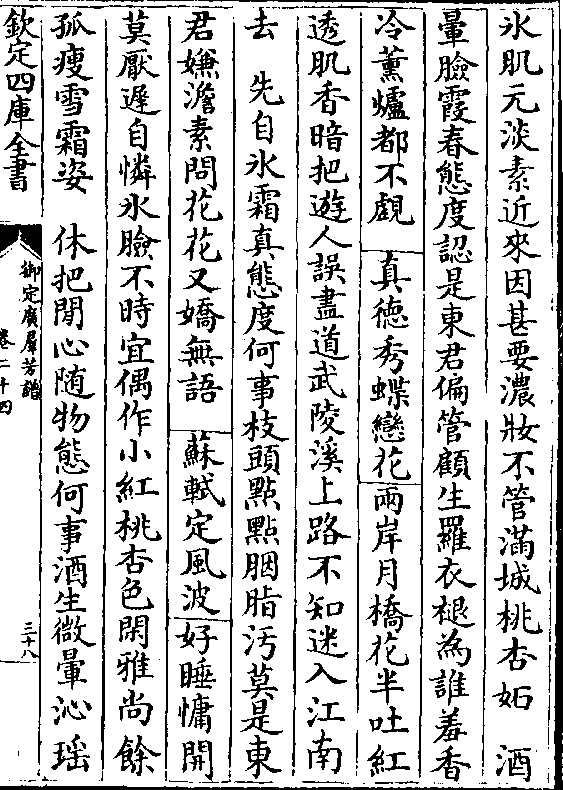 氷肌元淡素近來因甚要濃妝不管滿城桃杏妬　酒
暈臉霞春態度認是東君偏管顧生羅衣褪為誰羞香
冷薰爐都不覷　真德秀蝶戀花兩岸月橋花半吐紅
透肌香暗把遊人誤盡道武陵溪上路不知迷入江南
去　先自氷霜真態度何事枝頭點點胭脂汚莫是東
君嫌澹素問花花又嬌無語　蘇軾定風波好睡慵開
莫厭遲自憐氷臉不時宜偶作小紅桃杏色閑雅尚餘
孤瘦雪霜姿　休把閒心随物態何事酒生微暈沁瑶
欽定四庫全書
御定廣羣芳譜
卷二十四
三十八